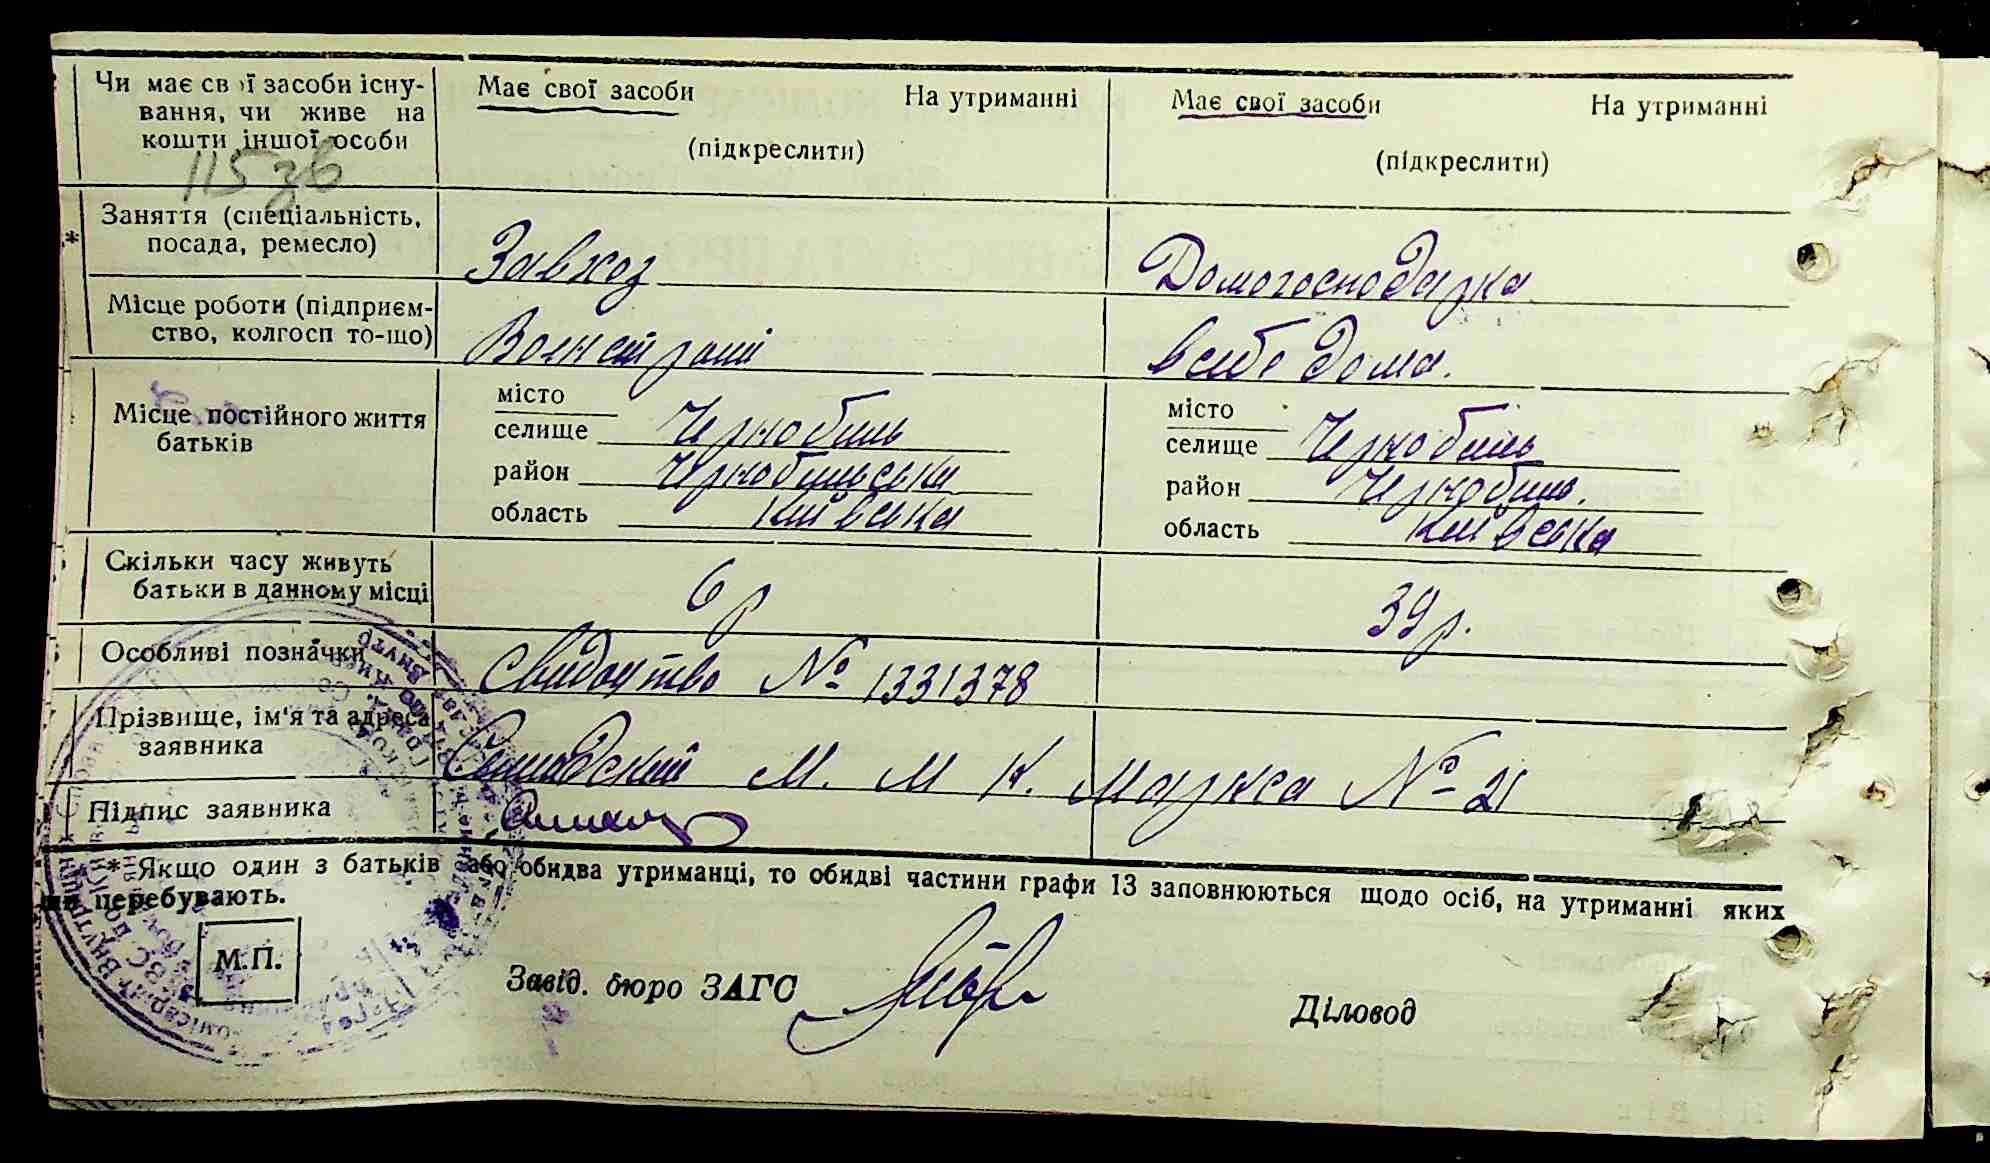 Чи має свої засоби існу- Має свої засоби На утриманні Має свої засоби На утриманні
вання, чи живе на
кошти іншої особи (підкреслити) (підкреслити)
115зв
* Заняття (спеціальність,
посада, ремесло) Завхоз Домогосподарка
Місце роботи (підприєм-
ство, колгосп то-що) в себе дома.
Місце постійного життя
батьків
місто
селище Чернобиль
район Чернобильська
область Київська
місто
селище Чернобиль
район Чернобиль.
область Київська
Скільки часу живуть
батьки в данному місці 6 р 39 р.
Особливі позначки Свидоцтво № 1331378
Прізвище, ім'я та адреса
заявника М. М К. Маркса № 21
Підпис заявника
* Якщо один з батьків або обидва утриманці, то обидві частини графи 13 заповнюються щодо осіб, на утриманні яких
перебувають.
М.П.
Завід. бюро ЗАГС Діловод